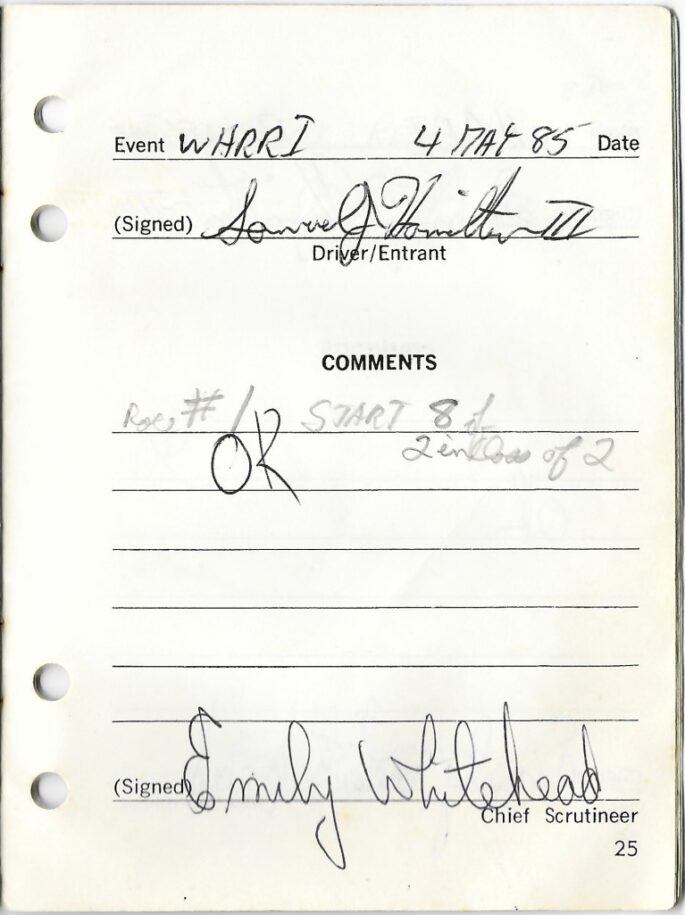 Event WHRRI 4 MAY 85 Date
(Signed) Samuel J Hamilton III
Driver/Entrant
COMMENTS
Race #1 START 8 of
OK 2 in Class of 2
(Signed) Emily Whitehead
Chief Scrutineer
25